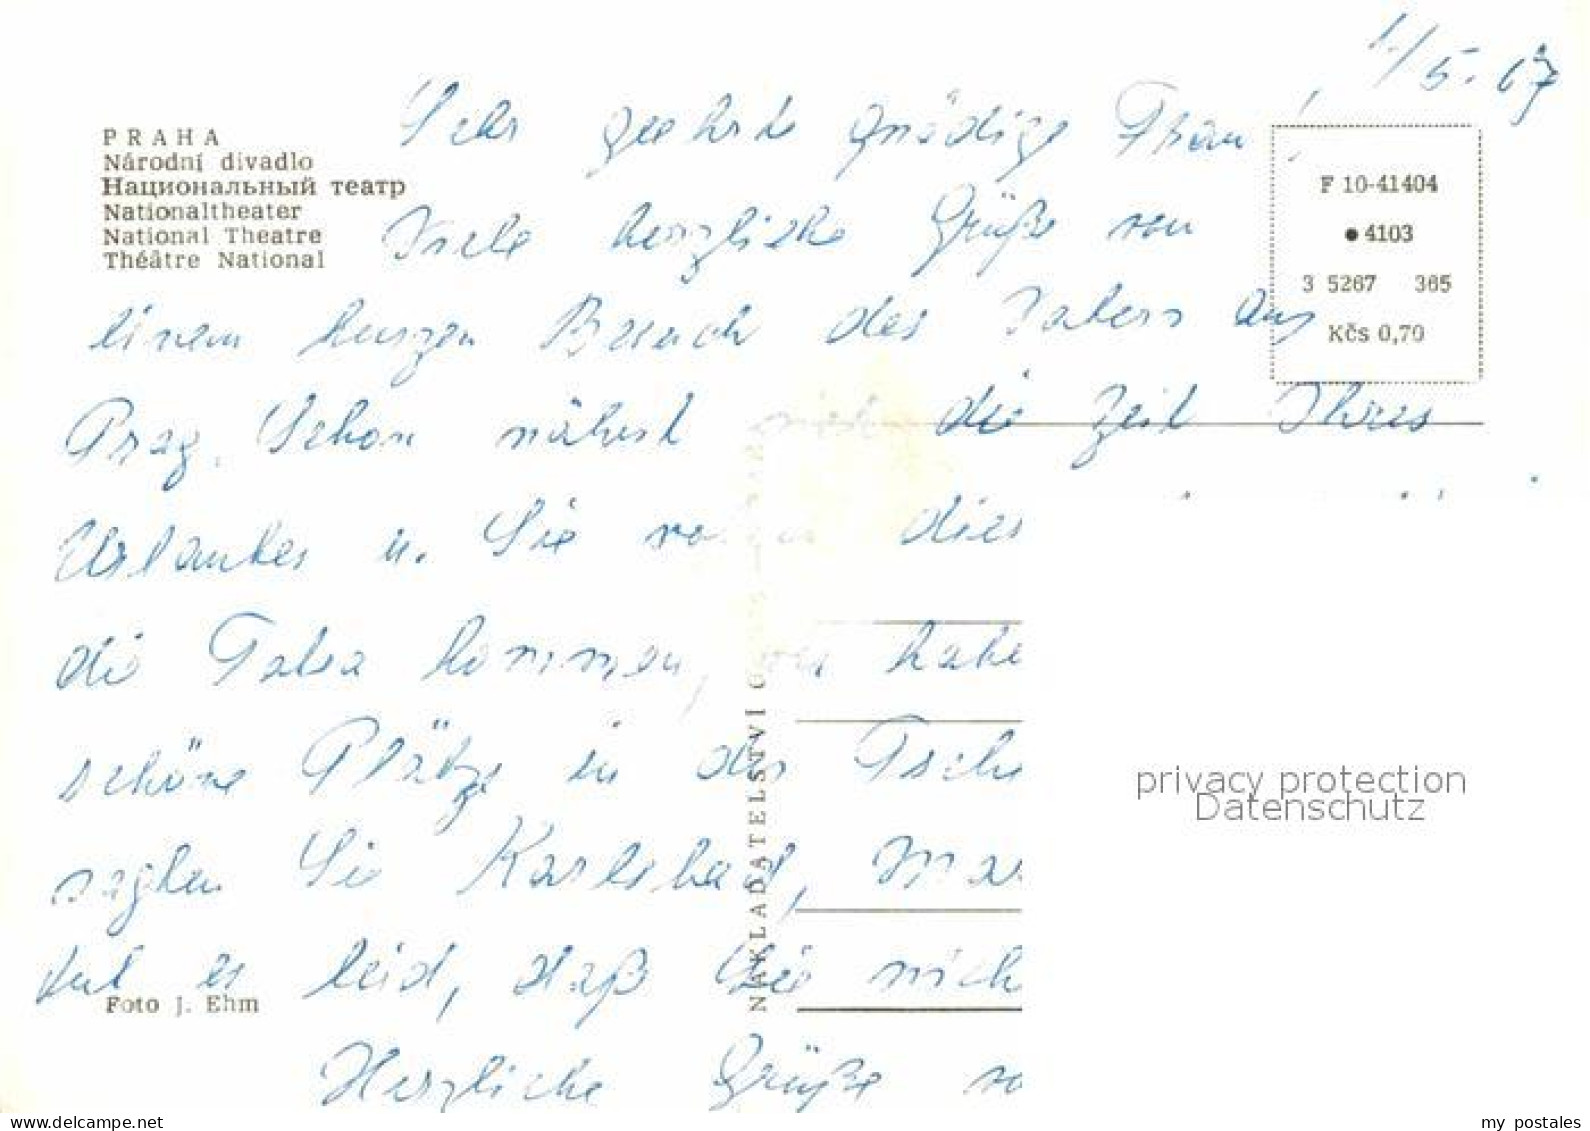 1./5. 67
Sehr geehrte gnädige Frau!
PRAHA
Národní divadlo
Национальный театр
Nationaltheater
National Theatre
Théâtre National
F 10-41404
● 4103
3 5267 365
Kčs 0,70
Viele herzliche Grüße von
einem kurzen Besuch des Vaters aus
Prag. Schon nähert sich die Zeit Ihres
Urlaubes u. Sie dies
die Tatra kommen, wir habe
schöne Plätze in der Tsche
sagten Sie Karlsbad, Mar
tut es leid, daß Sie mich
Foto J. Ehm
Herzliche Grüße vo
NAKLADATELSTVÍ
privacy protection
Datenschutz
my postales